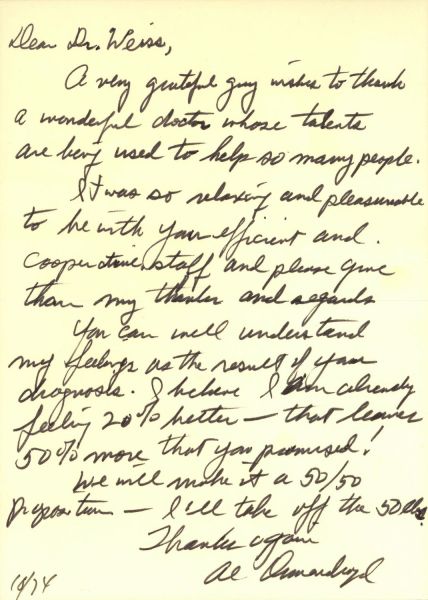 Dear Dr. Weiss,
A very grateful guy wishes to thank
a wonderful doctor whose talents
are being used to help so many people.
It was so relaxing and pleasurable
to be with your efficient and
cooperative staff and please give
them my thanks and regards
You can well understand
my feelings as the result of your
diagnosis. I believe I am already
feeling 20% better — that leaves
50% more that you promised!
We will make it a 50/50
proposition — I'll take off the 50 lbs.
Thanks again
Al
10/74